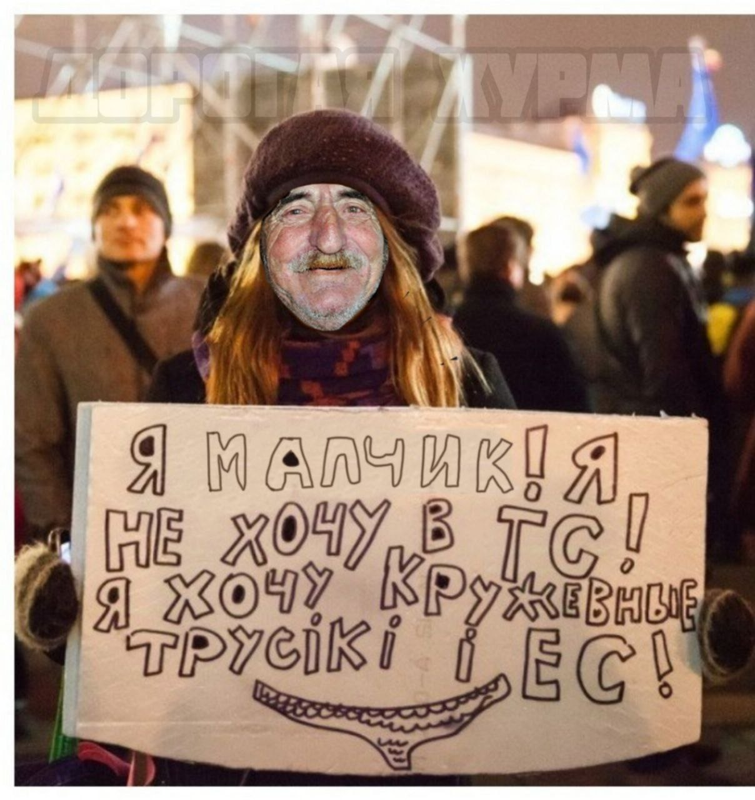 ДОРОГАЯ ЖУРМА
Я МАЛЧИК! Я
НЕ ХОЧУ В ТС!
Я ХОЧУ КРУЖЕВНЫЕ
ТРУСІКІ І ЕС!